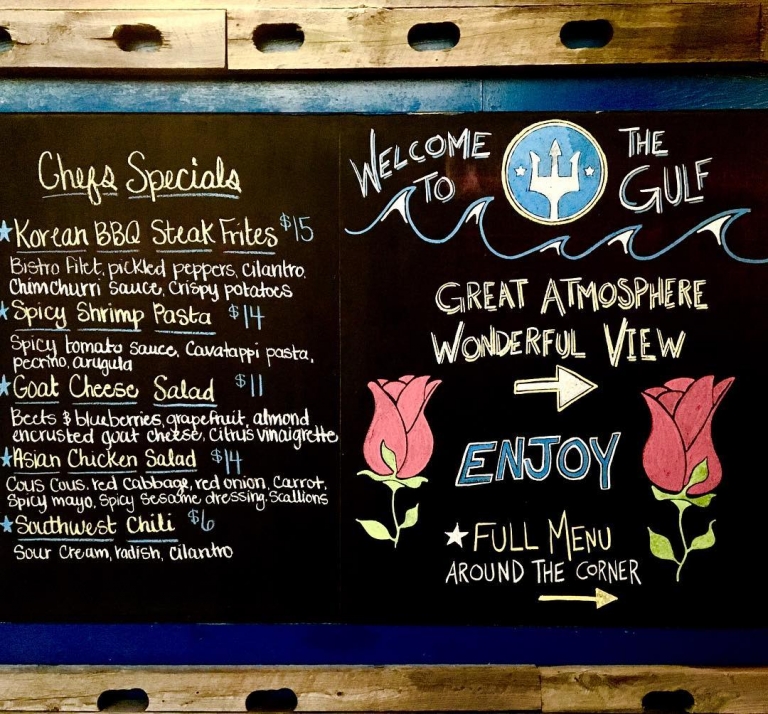 Chefs Specials
Korean BBQ Steak Frites $15
Bistro Filet, pickled peppers, cilantro,
Chimchurri sauce, crispy potatoes
Spicy Shrimp Pasta $14
Spicy tomato sauce, Cavatappi pasta,
pecrino, arugula
Goat Cheese Salad $11
Beets & blueberries, grapefruit, almond
encrusted goat cheese, citrus vinaigrette
Asian Chicken Salad $14
Cous Cous, red cabbage, red onion, Carrot,
Spicy mayo, Spicy Sesame dressing, Scallions
Southwest Chili $6
Sour Cream, radish, cilantro
WELCOME
TO
THE
GULF
GREAT ATMOSPHERE
WONDERFUL VIEW
ENJOY
FULL MENU
AROUND THE CORNER